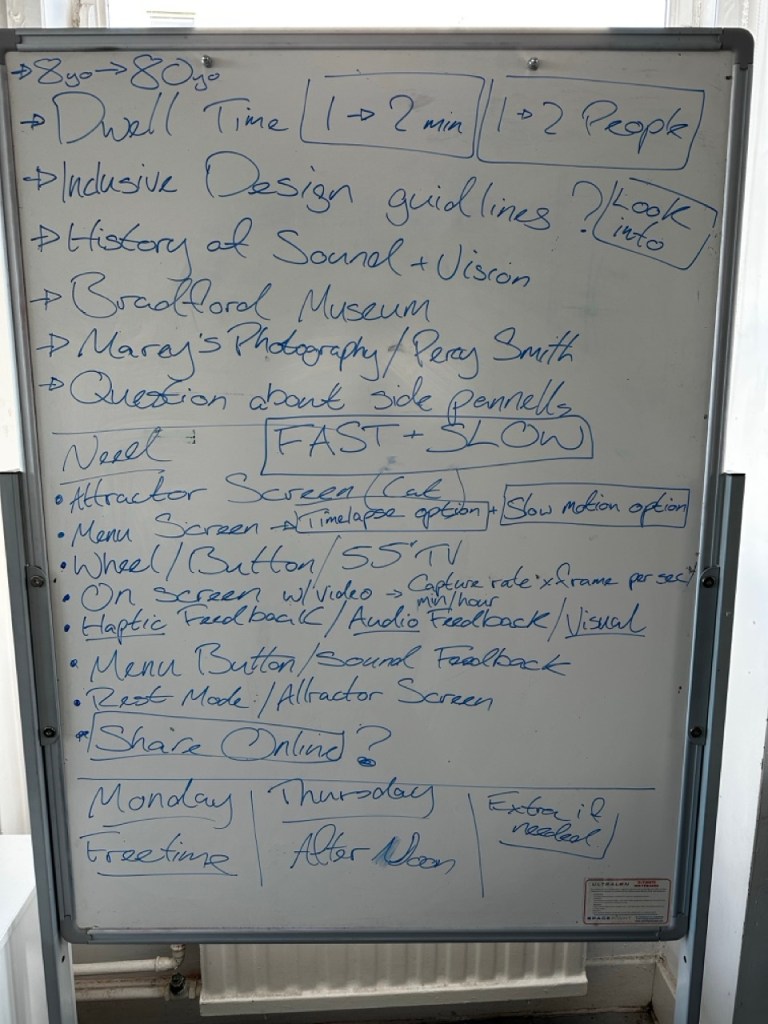 → 8yo → 80yo
→ Dwell Time 1 → 2 min 1 → 2 People
→ Inclusive Design guidlines ? Look into
→ History of Sound + Vision
→ Bradford Museum
→ Marey's Photography / Percy Smith
→ Question about side pannells
Need FAST + SLOW
• Attractor Screen (Cat)
• Menu Screen → Timelapse option + Slow motion option
• Wheel / Button / 55" TV
• On screen w/ video → Capture rate: x frame per sec/
min/hour
• Haptic Feedback / Audio Feedback / Visual
• Menu Button / Sound Feedback
• Rest Mode: / Attractor Screen
• Share Online ?
Monday Thursday Extra if
needed
Freetime After Noon